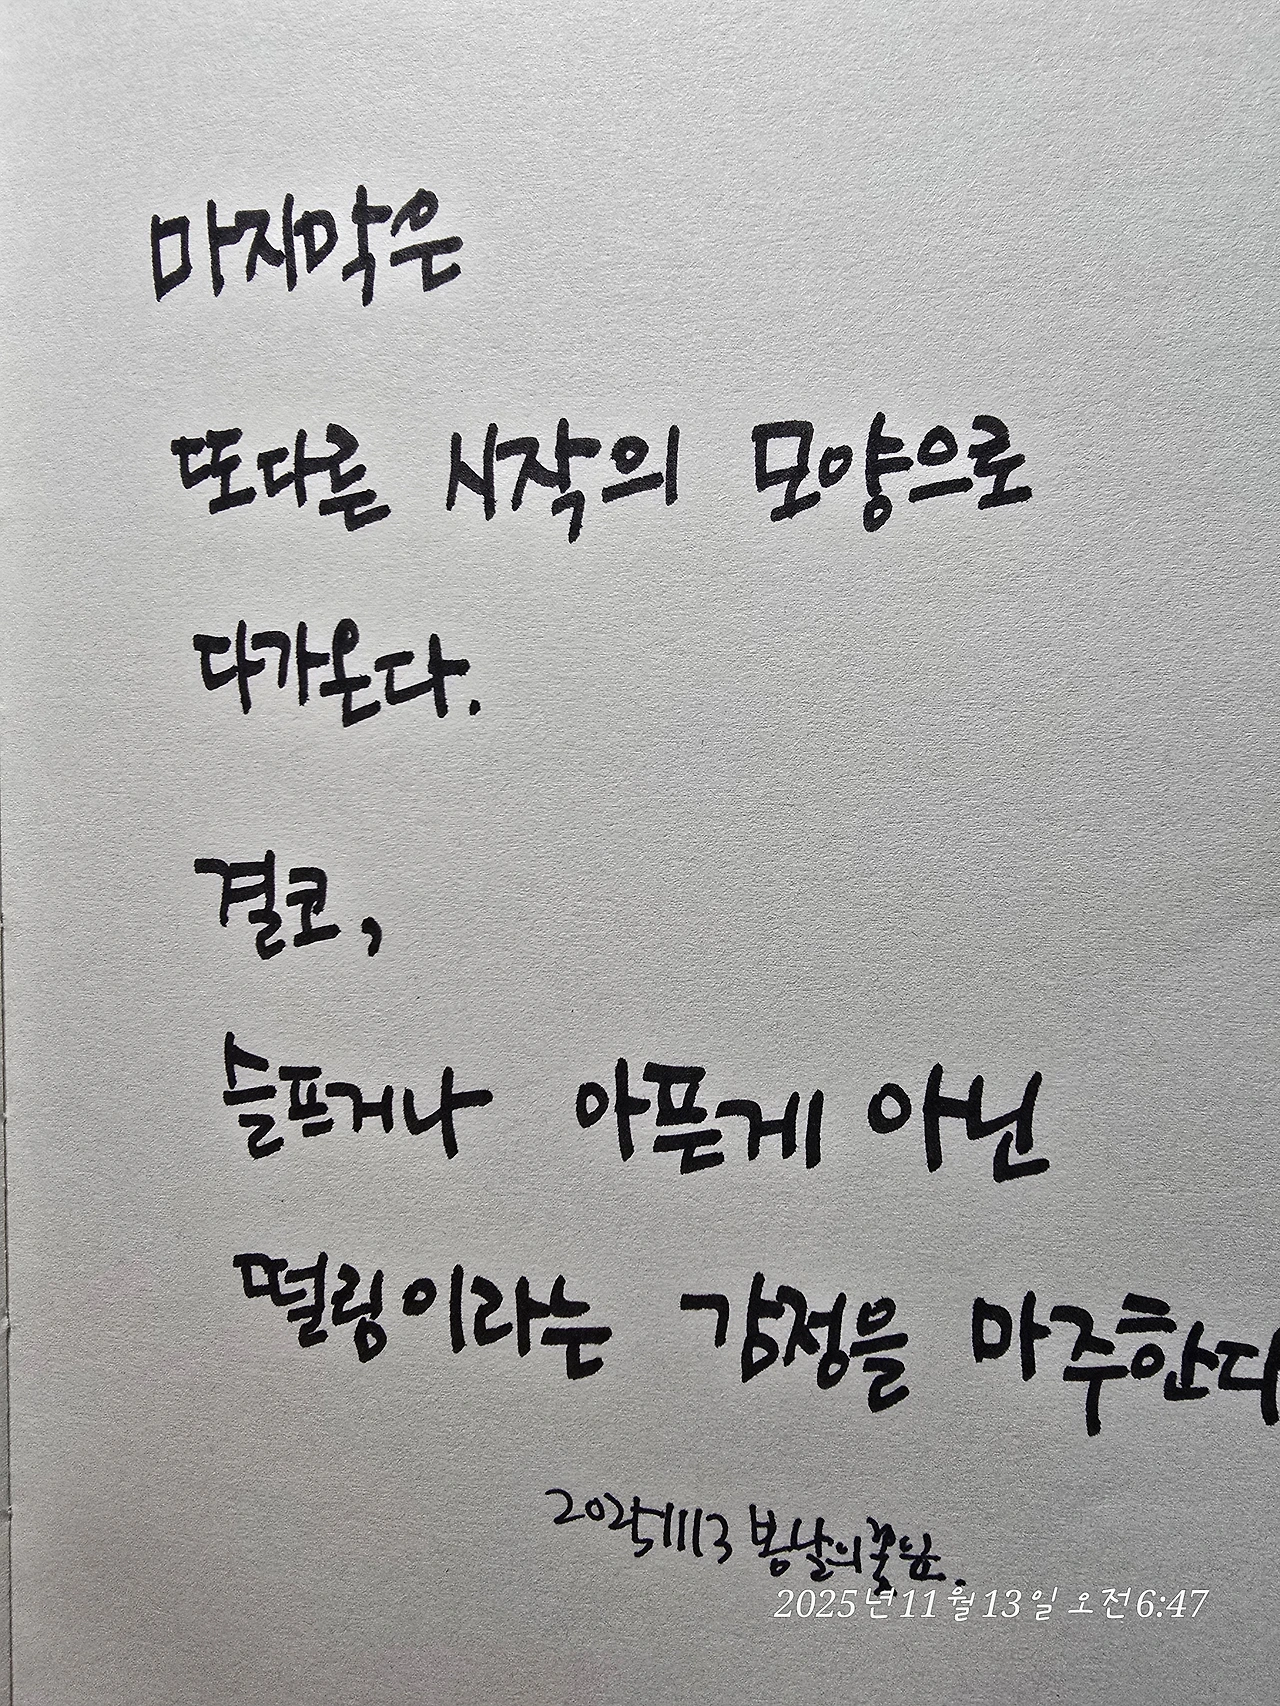 마지막은
또다른 시작의 모양으로
다가온다.
결코,
슬프거나 아픈게 아닌
떨림이라는 감정을 마주한다
20251113 봄날의꽃잎.
2025년 11월 13일 오전 6:47